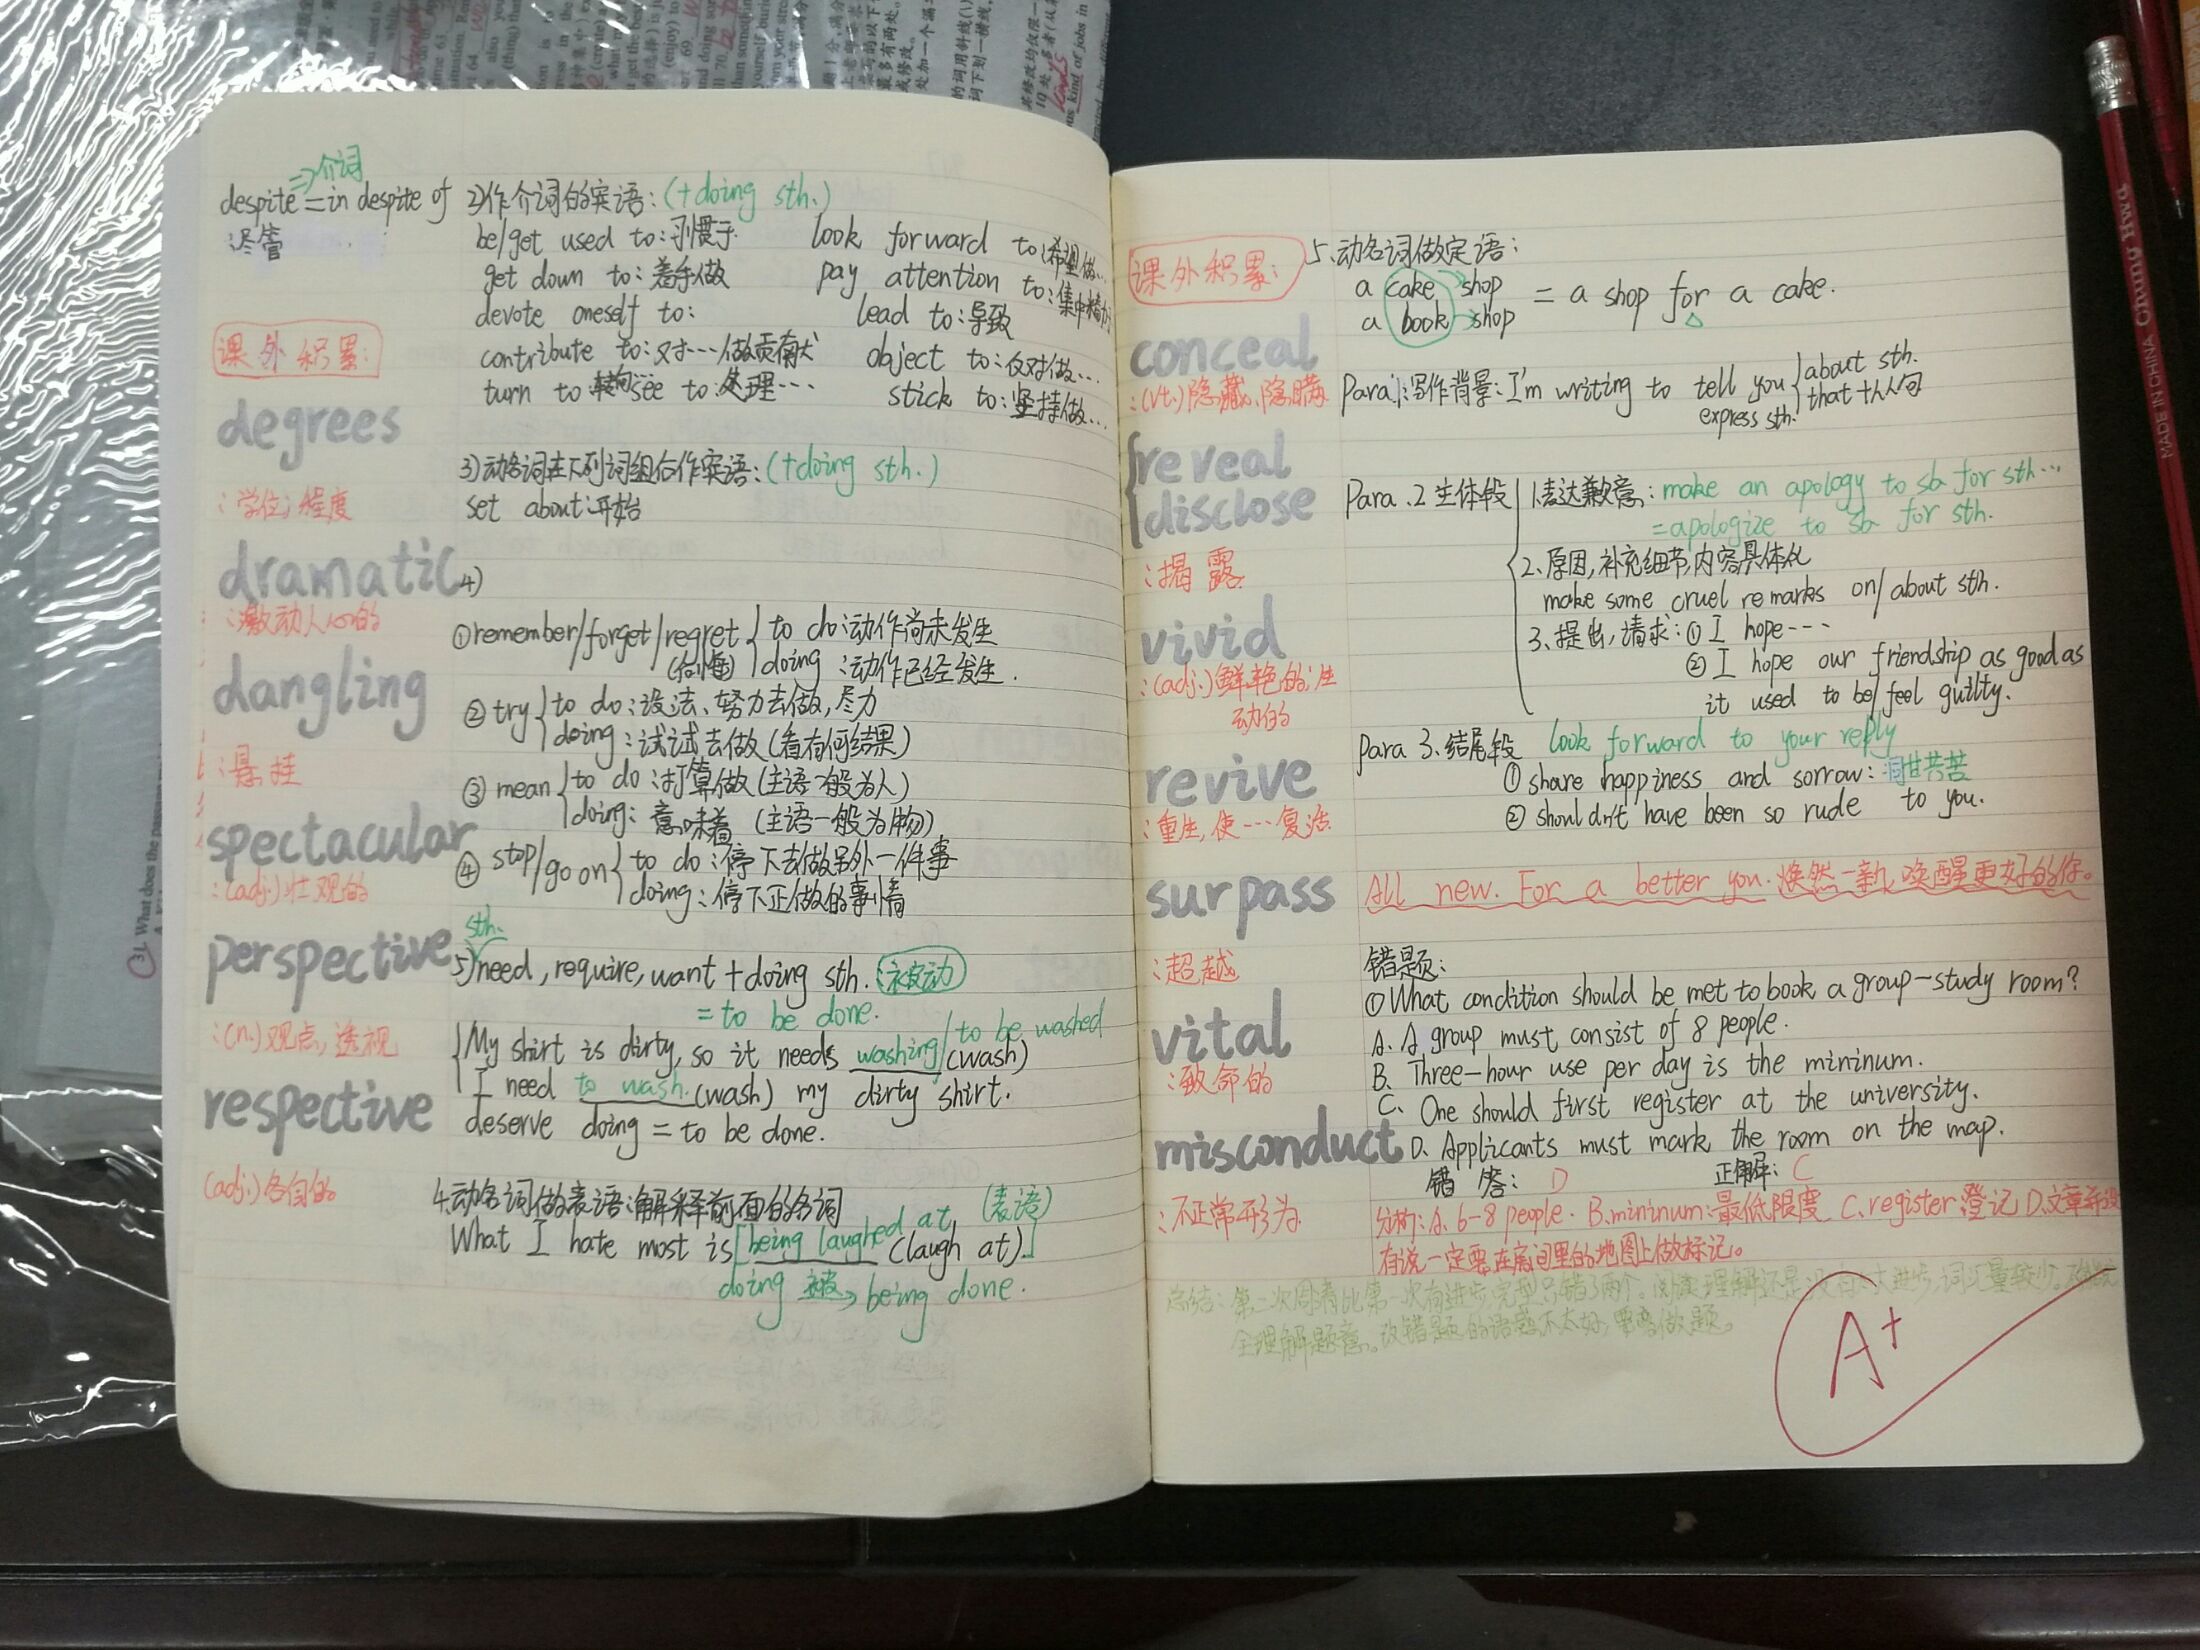 despite = in despite of
⇒介词
尽管
课外积累:
degrees
:学位;程度
dramatic
:激动人心的
dangling
:悬挂
spectacular
:(adj.)壮观的
perspective
:(n.)观点,透视
respective
(adj.)各自的
2)作介词的宾语:(+doing sth.)
be/get used to:习惯于 look forward to:希望做…
get down to:着手做 pay attention to:集中精力
devote oneself to: lead to:导致
contribute to:对…做贡献 object to:反对做…
turn to:转向… see to:处理… stick to:坚持做…
3)动名词在下列词组后作宾语:(+doing sth.)
set about:开始
4)
①remember/forget/regret{to do:动作尚未发生
(后悔) doing:动作已经发生.
②try{to do:设法、努力去做,尽力
doing:试试去做(看有何结果)
③mean{to do:打算做(主语一般为人)
doing:意味着(主语一般为物)
④stop/go on{to do:停下去做另外一件事
doing:停下正做的事情
sth.
5)need,require,want+doing sth.:被动
=to be done.
My shirt is dirty, so it needs washing/to be washed (wash)
I need to wash.(wash) my dirty shirt.
deserve doing = to be done.
4.动名词做表语:解释前面的名词
What I hate most is[being laughed at (laugh at).](表语)
doing 被→being done.
课外积累:
conceal
:(vt.)隐藏、隐瞒
reveal
disclose
:揭露
vivid
:(adj.)鲜艳的;生
动的
revive
:重生,使…复活
surpass
:超越
vital
:致命的
misconduct
:不正常形为
5.动名词做定语:
a cake shop
a book shop
= a shop for a cake.
Para.1:写作背景:I'm writing to tell you{about sth.
express sth. that+人句
Para.2 主体段 1.表达歉意:make an apology to sb for sth…
=apologize to sb for sth.
2、原因,补充细节,内容具体化
make some cruel remarks on/about sth.
3.提出,请求:①I hope---
②I hope our friendship as good as
it used to be/feel guilty.
Para 3.结尾段 look forward to your reply
①share happiness and sorrow:同甘共苦
②shouldn't have been so rude to you.
All new. For a better you.焕然一新,唤醒更好的你。
错题:
①What condition should be met to book a group-study room?
A. A group must consist of 8 people.
B. Three-hour use per day is the mininum.
C. One should first register at the university.
D. Applicants must mark the room on the map.
错答: D 正解: C
分析:A. 6-8 people. B.mininum:最低限度 C.register登记 D.文章并没
有说一定要在房间里的地图上做标记。
总结:第二次周考比第一次有进步,完型只错了两个。阅读理解还是没有太大进步,词汇量较少。
全理解题意。改错题的语感不太好,要多做题。
A+
MADE IN CHINA Chung Hwa